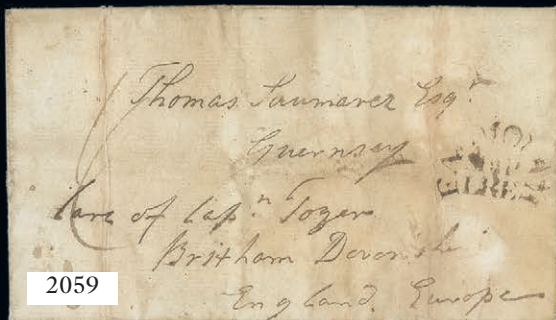 Thomas Saumarez Esqr.
Guernsey
Care of Capn. Tozer
Brixham Devonshi
England, Europe
2059